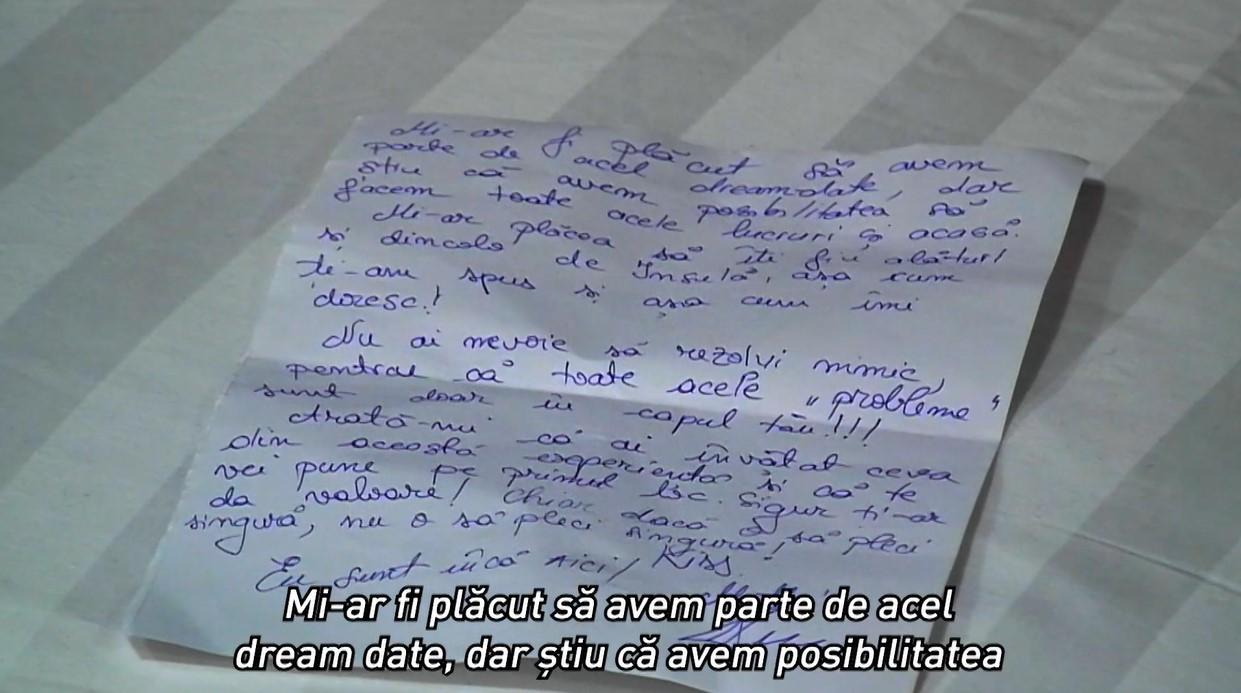 Mi-ar fi plăcut să avem
parte de acel dreamdate, dar
știu că avem posibilitatea să
facem toate acele lucruri și acasă.
Mi-ar plăcea să îți fiu alături
și dincolo de Insulă, așa cum
ti-am spus și așa cum îmi
doresc!
Nu ai nevoie să rezolvi nimic,
pentru că toate acele "probleme"
sunt doar în capul tău!!!
Arată-mi că ai învătat ceva
din aceastā experientă si că te
vei pune pe primul loc. Sigur ti-ar
da valoare! Chiar dacă o să pleci
singură, nu o să pleci singură!
Eu sunt încă aici! Kiss
Mi-ar fi plăcut să avem parte de acel
dream date, dar știu că avem posibilitatea